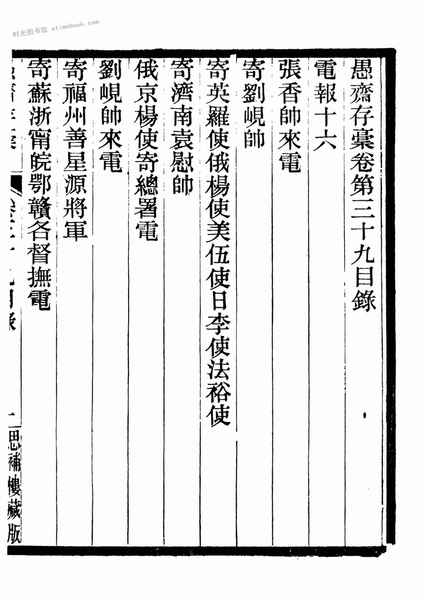 愚齋存稾卷第三十九目錄
電報十六
張香帥來電
寄劉峴帥
寄英羅使俄楊使美伍使日李使法裕使
寄濟南袁慰帥
俄京楊使寄總署電
劉峴帥來電
寄福州善星源將軍
寄蘇浙甯皖鄂贛各督撫電
思補樓藏版